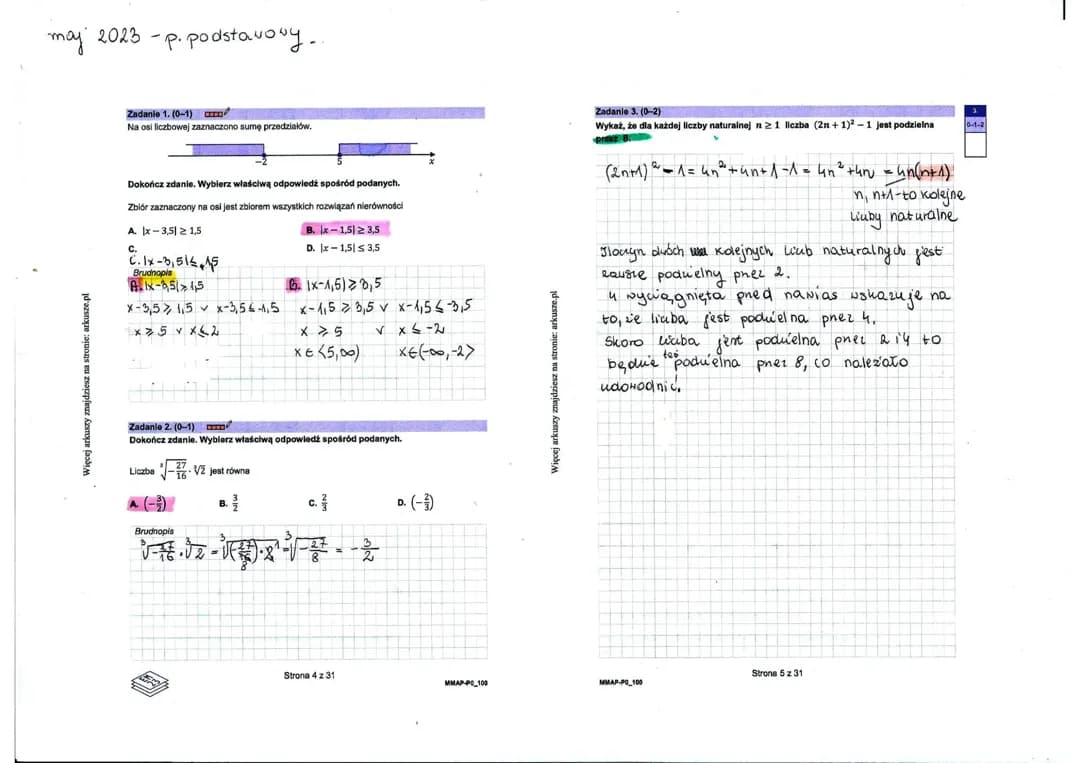 maj 2023 - p. podstawowy.
Zadanie 1. (0–1)
Na osi liczbowej zaznaczono sumę przedziałów.
-2 5 x
Dokończ zdanie. Wybierz właściwą odpowiedź spośród podanych.
Zbiór zaznaczony na osi jest zbiorem wszystkich rozwiązań nierówności
A. |x − 3,5| ≥ 1,5 B. |x − 1,5| ≥ 3,5
C. D. |x − 1,5| ≤ 3,5
C. |x-3,5| ≤ 1,5
Brudnopis
A. |x-3,5| ≥ 1,5 B. |x-1,5| ≥ 3,5
x-3,5 ≥ 1,5 ∨ x-3,5 ≤ -1,5 x-1,5 ≥ 3,5 ∨ x-1,5 ≤ -3,5
x ≥ 5 ∨ x ≤ 2 x ≥ 5 ∨ x ≤ -2
x ∈ <5,∞) x ∈ (-∞,-2>
Zadanie 2. (0–1)
Dokończ zdanie. Wybierz właściwą odpowiedź spośród podanych.
Liczba ∛(−27/16) · ∛2 jest równa
A. (−3/2) B. 3/2 C. 2/3 D. (−2/3)
Brudnopis
∛(-27/16) · ∛2 = ∛((-27/16) · 2) = ∛(-27/8) = -3/2
Strona 4 z 31
MMAP-P0_100
Więcej arkuszy znajdziesz na stronie: arkusze.pl
Zadanie 3. (0–2)
Wykaż, że dla każdej liczby naturalnej n ≥ 1 liczba (2n + 1)² − 1 jest podzielna
przez 8.
3.
0–1–2
(2n+1)² - 1 = 4n² + 4n + 1 - 1 = 4n² + 4n = 4n(n+1)
n, n+1 - to kolejne
liczby naturalne
Iloczyn dwóch kolejnych liczb naturalnych jest
zawsze podzielny przez 2.
4 wyciągnięta przed nawias wskazuje na
to, że liczba jest podzielna przez 4.
Skoro liczba jest podzielna przez 2 i 4 to
będzie też podzielna przez 8, co należało
udowodnić.
Strona 5 z 31
MMAP-P0_100
Więcej arkuszy znajdziesz na stronie: arkusze.pl